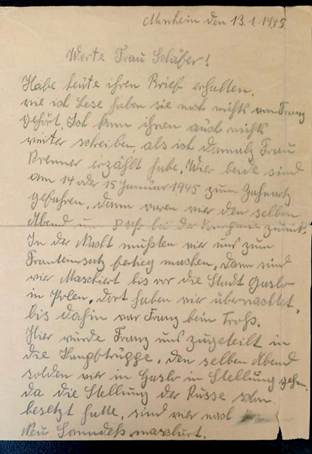 den 13.1.1945
Werte Frau Schäfer!
Habe heute ihren Brief erhalten.
wie ich Lese haben sie noch nichts von Franz
gehört. Ich kann ihnen auch nichts
weiter schreiben, als ich damals Frau
Brenner erzählt habe. Wier beide sind
am 14 oder 15 Januar 1945 zum Zahnarzt
gefahren, dann waren wier den selben
Abend um 8 Uhr bei der Kompanie zurück.
In der Nacht mußten wier uns zum
Fronteinsatz fertig machen, dann sind
wier Maschiert bis vor die Stadt
in Polen. Dort haben wier übernachtet,
bis dahin war Franz beim Troß.
Hier wurde Franz uns zugeteilt in
die Kampftruppe. Den selben Abend
solden wier in in Stellung gehn.
da die Stellung der Russe schon
besetzt hatte, sind wier nach
Neu maschiert.